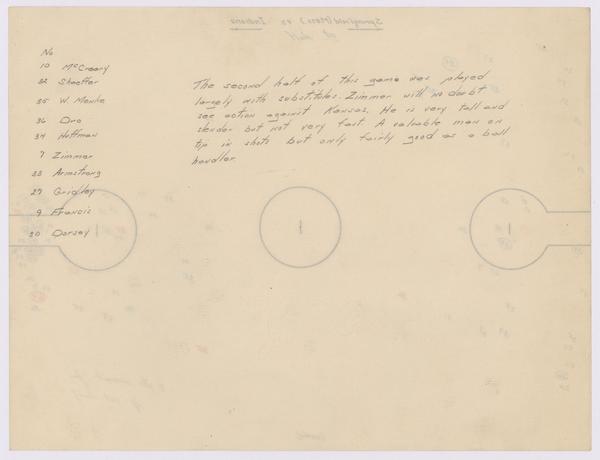 No
10 McCreary
32 Shaeffer
35 W. Menke
36 Oro
34 Hoffman
7 Zimmer
33 Armstrong
27 Gridley
9 Francis
20 Dorsey
The second half of this game was played
largely with substitutes. Zimmer will no doubt
see action against Kansas. He is very tall and
slender but not very fast. A valuable man on
tip in shots but only fairly good as a ball
handler
Springfield (Mass) vs Indiana